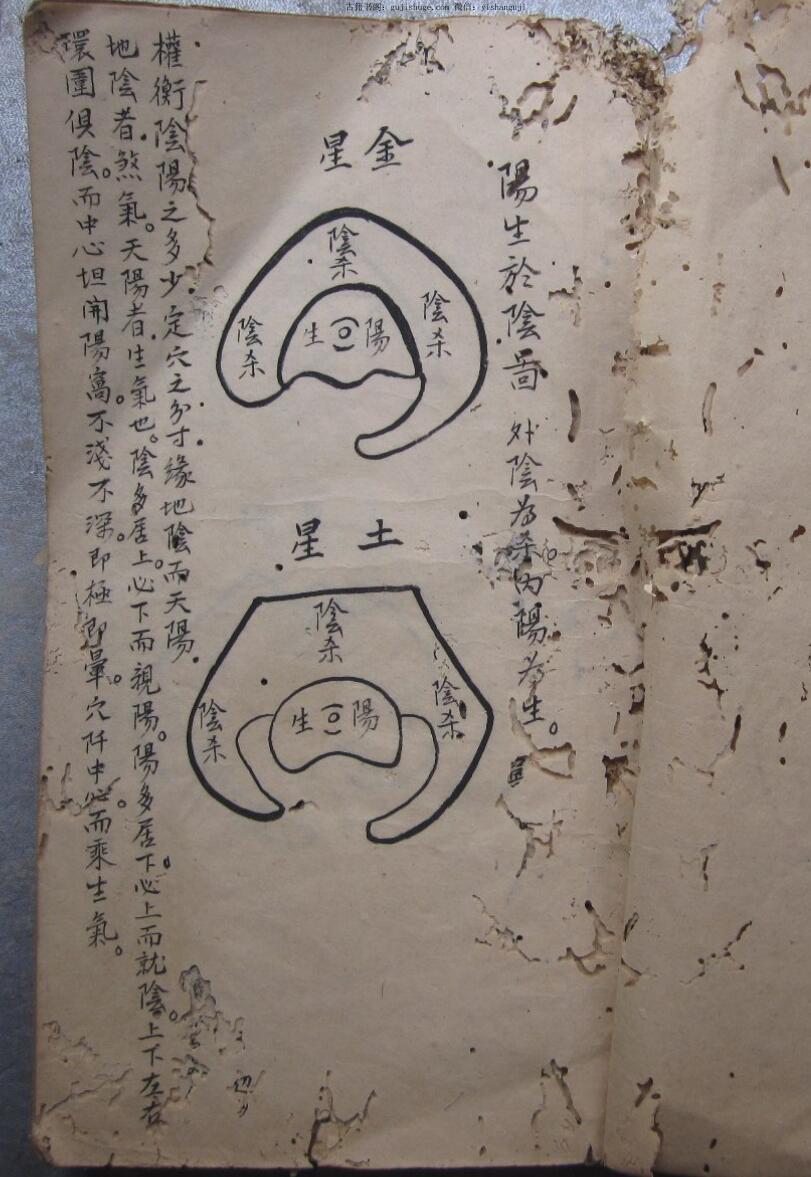 古籍书阁：gujishuge.com 微信：yishanguji
陽生於陰啚 外陰為杀內陽為生。
金星
陰杀
陰杀
陰杀
陽生
土星
陰杀
陰杀
陰杀
陽生
權衡陰陽之多少定穴之分寸緣地陰而天陽
地陰者煞氣。天陽者生氣也。陰多居上。必下而親陽。陽多居下。必上而就陰。上下左右
環圍俱陰。而中心坦開陽窩。不淺不深。即極即暈。穴阡中心。而乘生氣。